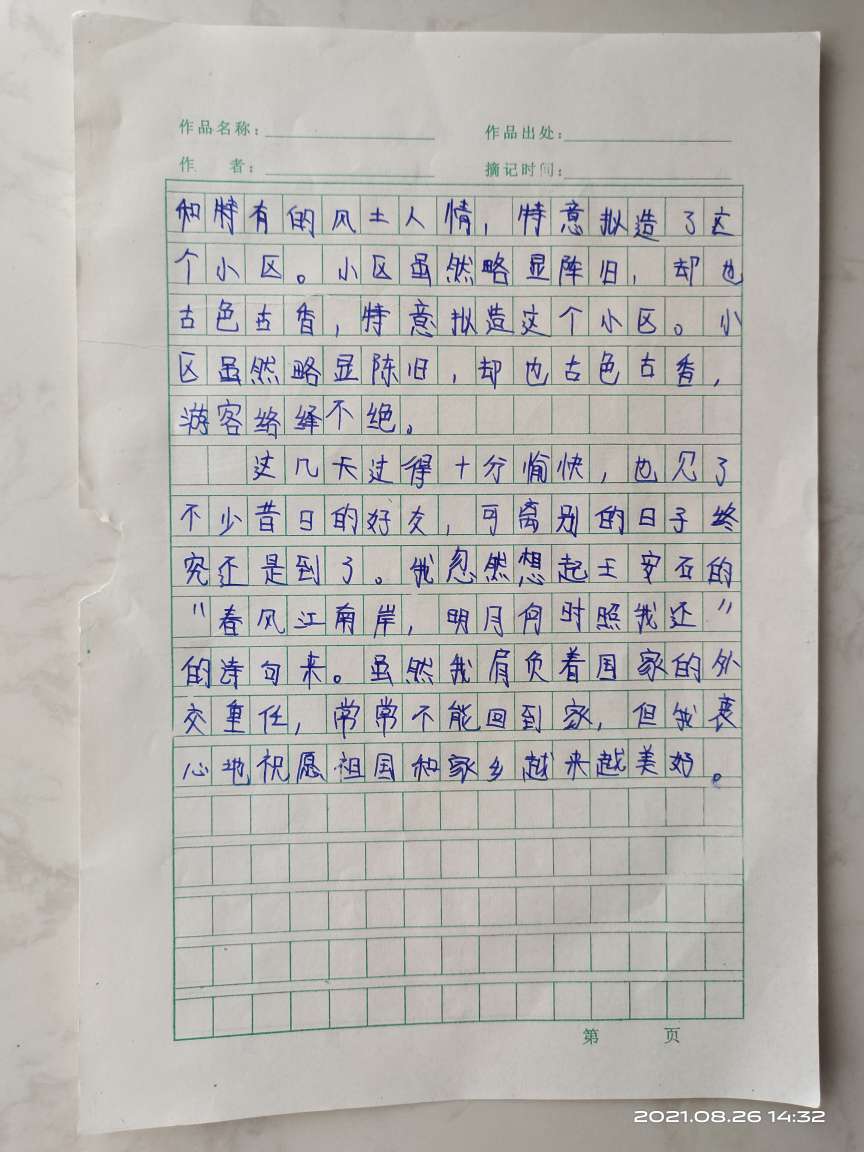 作品名称：
作品出处：
作 者：
摘记时间：
和特有的风土人情，特意拟造了这
个小区。小区虽然略显阵旧，却也
古色古香，特意拟造这个小区。小
区虽然略显陈旧，却也古色古香，
游客络绎不绝。
这几天过得十分愉快，也见了
不少昔日的好友，可离别的日子终
究还是到了。我忽然想起王安石的
“春风江南岸，明月何时照我还”
的诗句来。虽然我肩负着国家的外
交重任，常常不能回到家，但我衷
心地祝愿祖国和家乡越来越美好。
第 页
2021.08.26 14:32